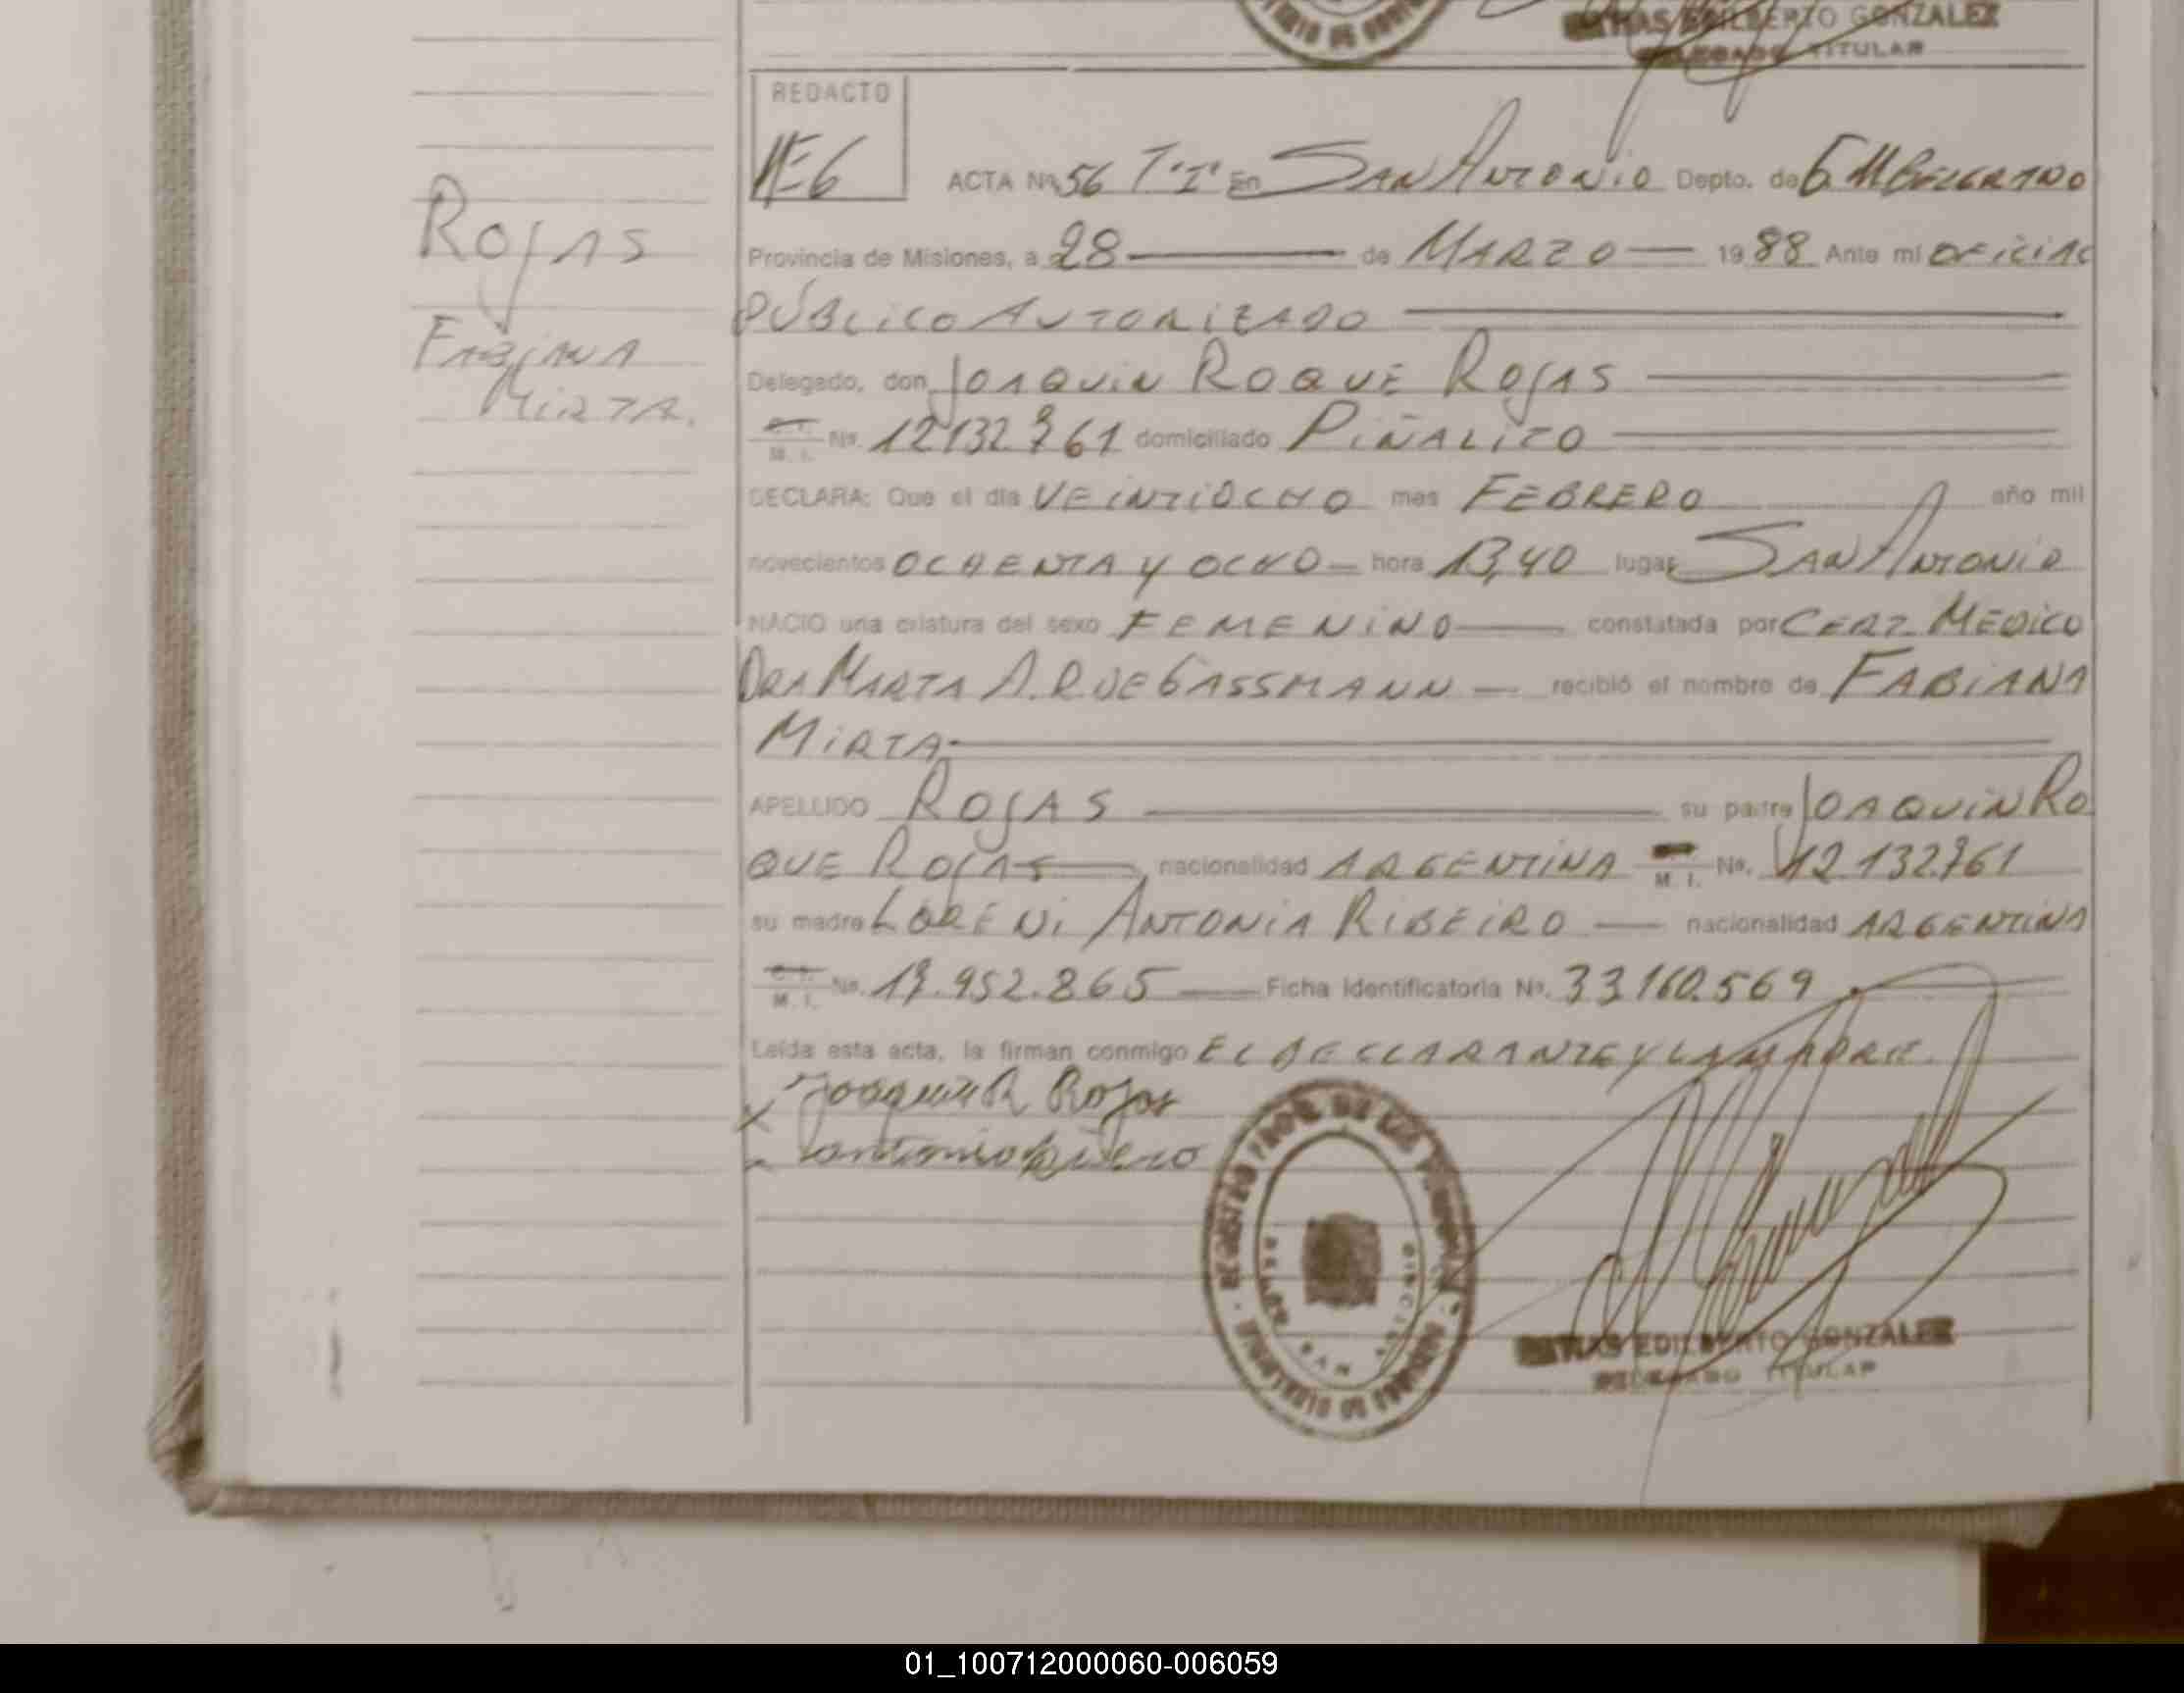 EDILBERTO GONZALEZ
TITULAR
REDACTO
ACTA Nº 56 Tº I° En SAN ANTONIO Depto. de G. M BELGRANO
Provincia de Misiones, a 28 de MARZO 1988 Ante mí OFICIAL
PÚBLICO AUTORIZADO
Delegado, don JOAQUIN ROQUE ROJAS
M. I. Nº. 12132.761 domiciliado PIÑALITO
DECLARA: Que el día VEINTIOCHO mes FEBRERO año mil
novecientos OCHENTA Y OCHO hora 13,40 lugar SAN ANTONIO
NACIO una criatura del sexo FEMENINO constatada por CERT MEDICO
DRA MARTA A. R DE GASSMANN recibió el nombre de FABIANA
MIRTA
APELLIDO ROJAS su padre JOAQUIN RO
QUE ROJAS nacionalidad ARGENTINA M. I. Nº. 12132.761
su madre LORENI ANTONIA RIBEIRO nacionalidad ARGENTINA
M. I. Nº. 17.952.865 Ficha Identificatoria Nº. 33160.569
Leída esta acta, la firman conmigo EL DECLARANTE Y LA MADRE.
Joaquin R Rojas
ROJAS
FABIANA
MIRTA.
REGISTRO PROV. DE LAS PERSONAS
EDILBERTO GONZALEZ
DELEGADO TITULAR
01_100712000060-006059